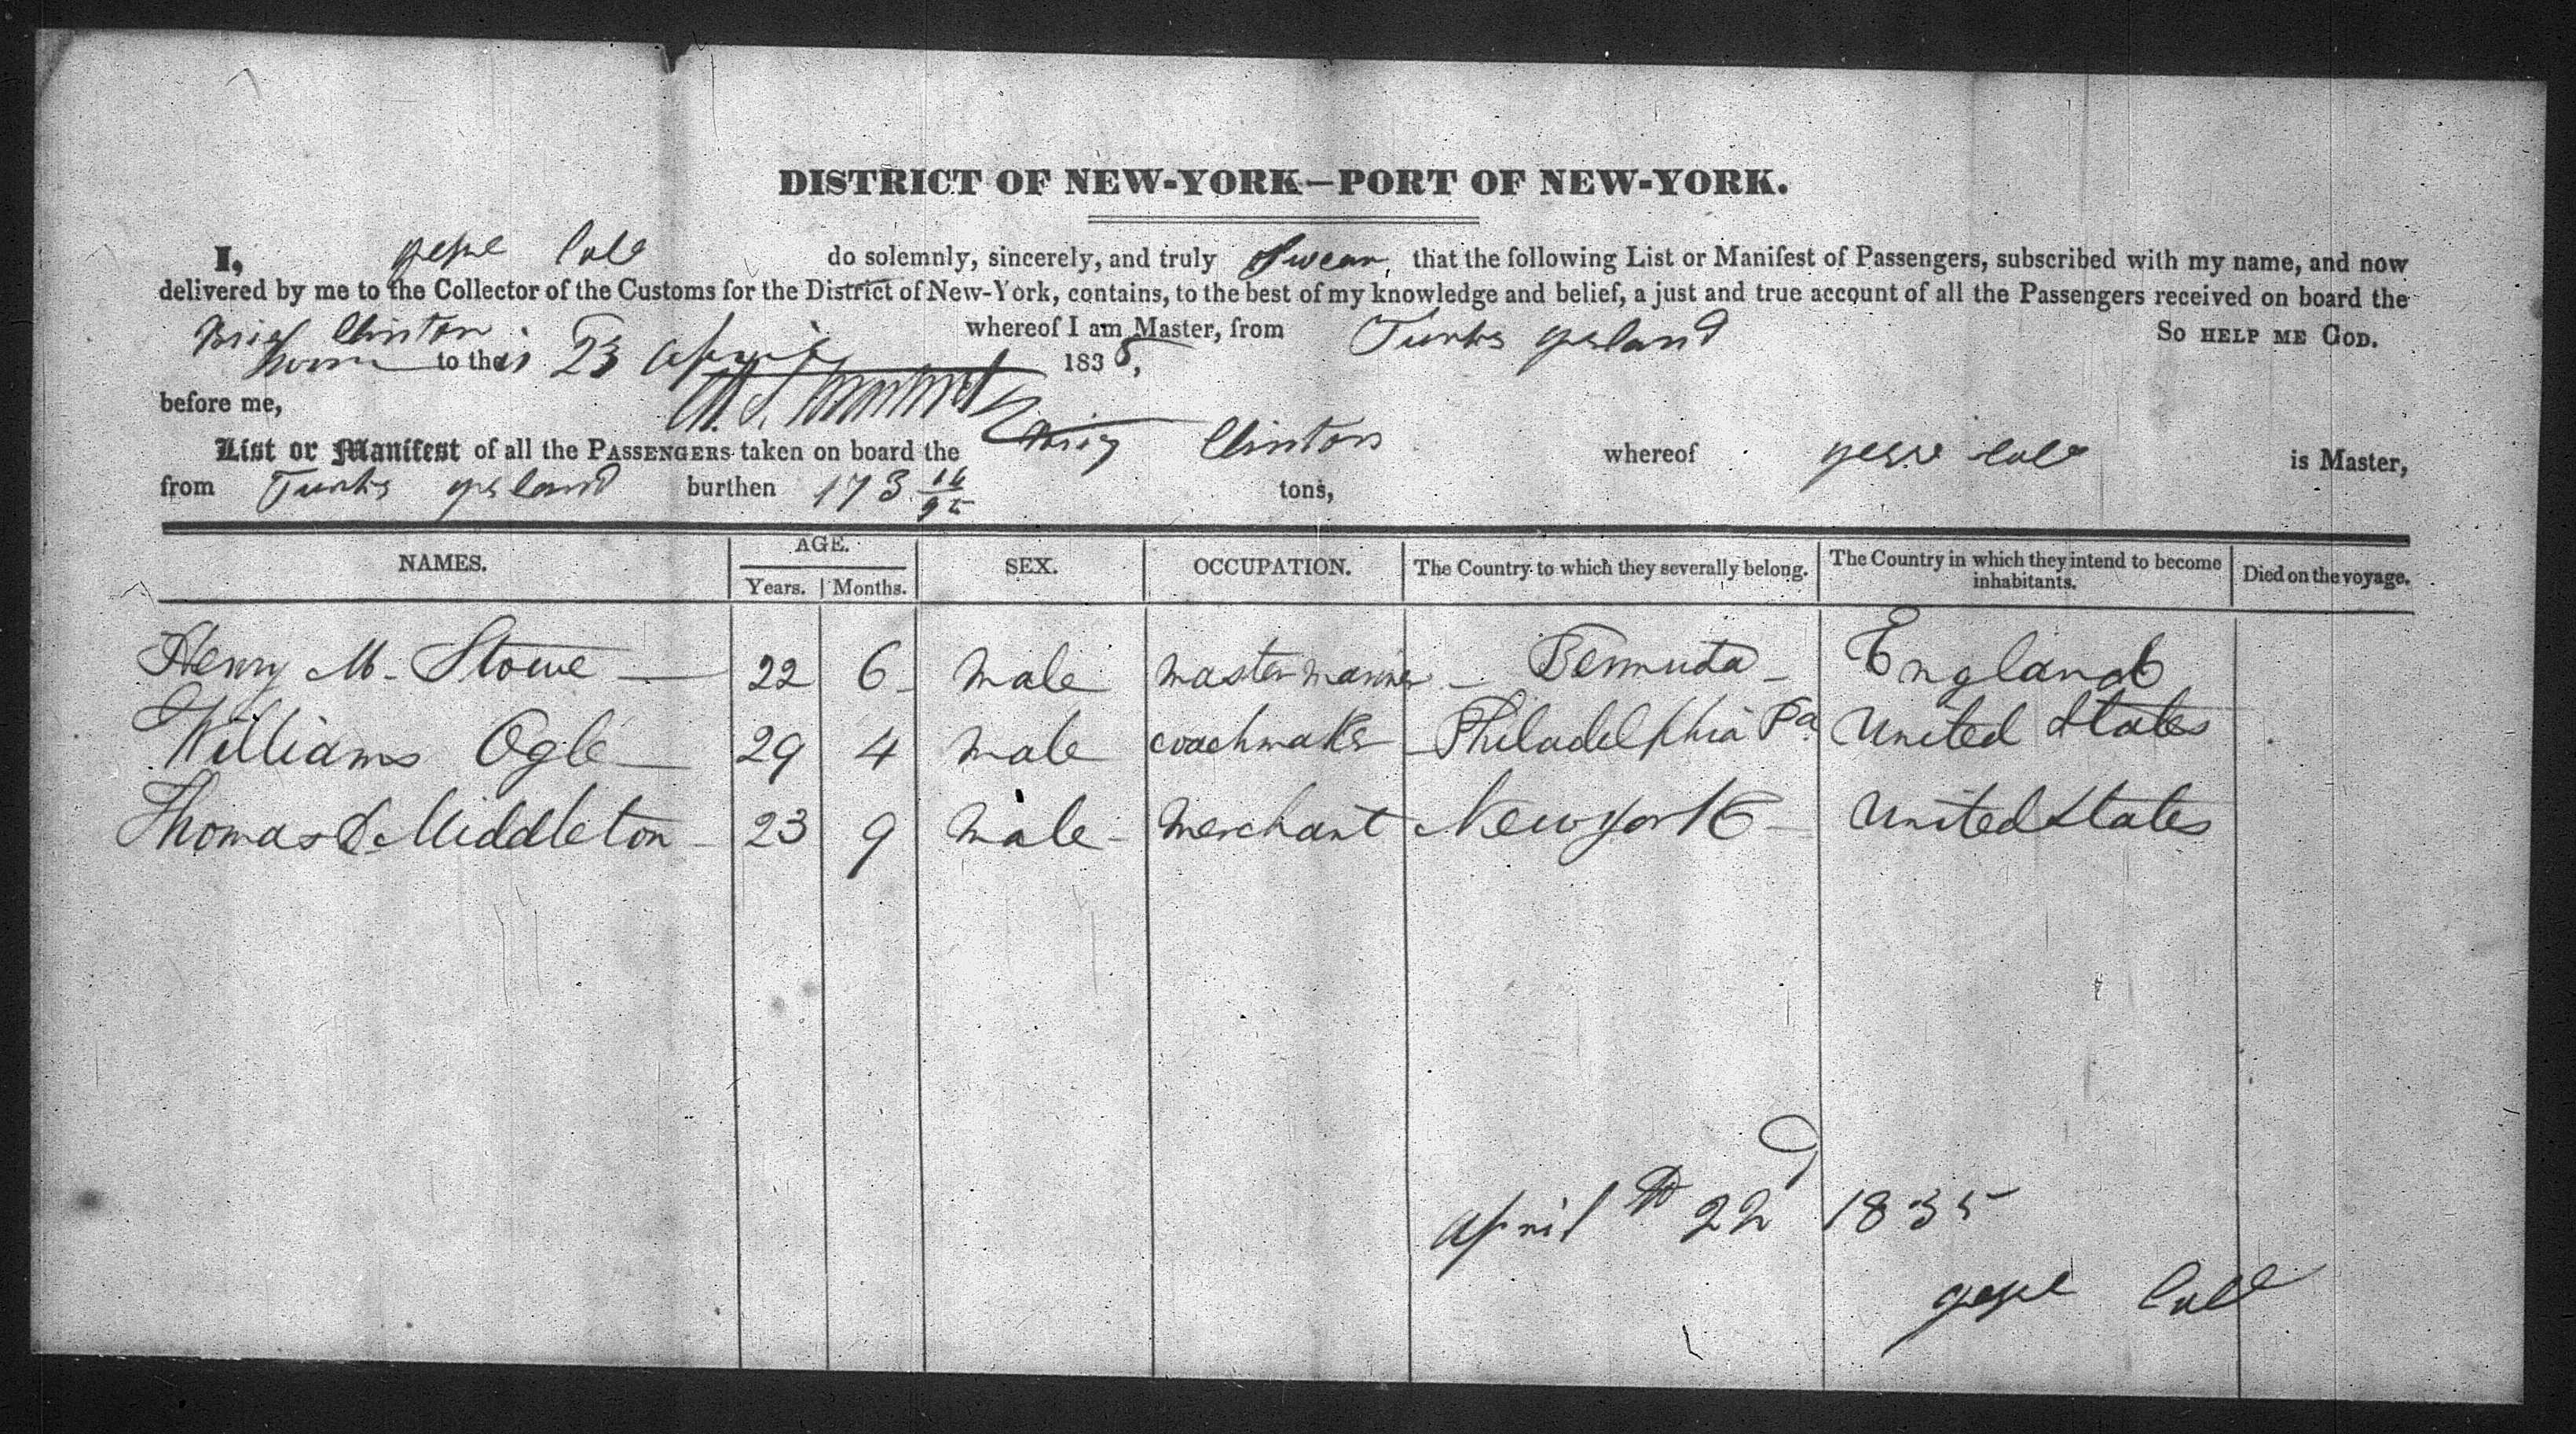 DISTRICT OF NEW-YORK—PORT OF NEW-YORK.
I, Jesse Cole do solemnly, sincerely, and truly Swear, that the following List or Manifest of Passengers, subscribed with my name, and now
delivered by me to the Collector of the Customs for the District of New-York, contains, to the best of my knowledge and belief, a just and true account of all the Passengers received on board the
Brig Clinton whereof I am Master, from Turks Island So HELP ME GOD.
Sworn to this 23 April 1835,
before me,
List or Manifest of all the PASSENGERS taken on board the Brig Clinton whereof Jesse Cole is Master,
from Turks Island burthen 173 16/95 tons,
NAMES. AGE. SEX. OCCUPATION. The Country to which they severally belong. The Country in which they intend to become inhabitants. Died on the voyage.
Years. Months.
Henry M. Stowe 22 6 male master mariner Bermuda England
Williams Ogle 29 4 male coachmaker Philadelphia Pa United States
Thomas S. Middleton 23 9 male merchant New york United States
April 22 1835
Jesse Cole